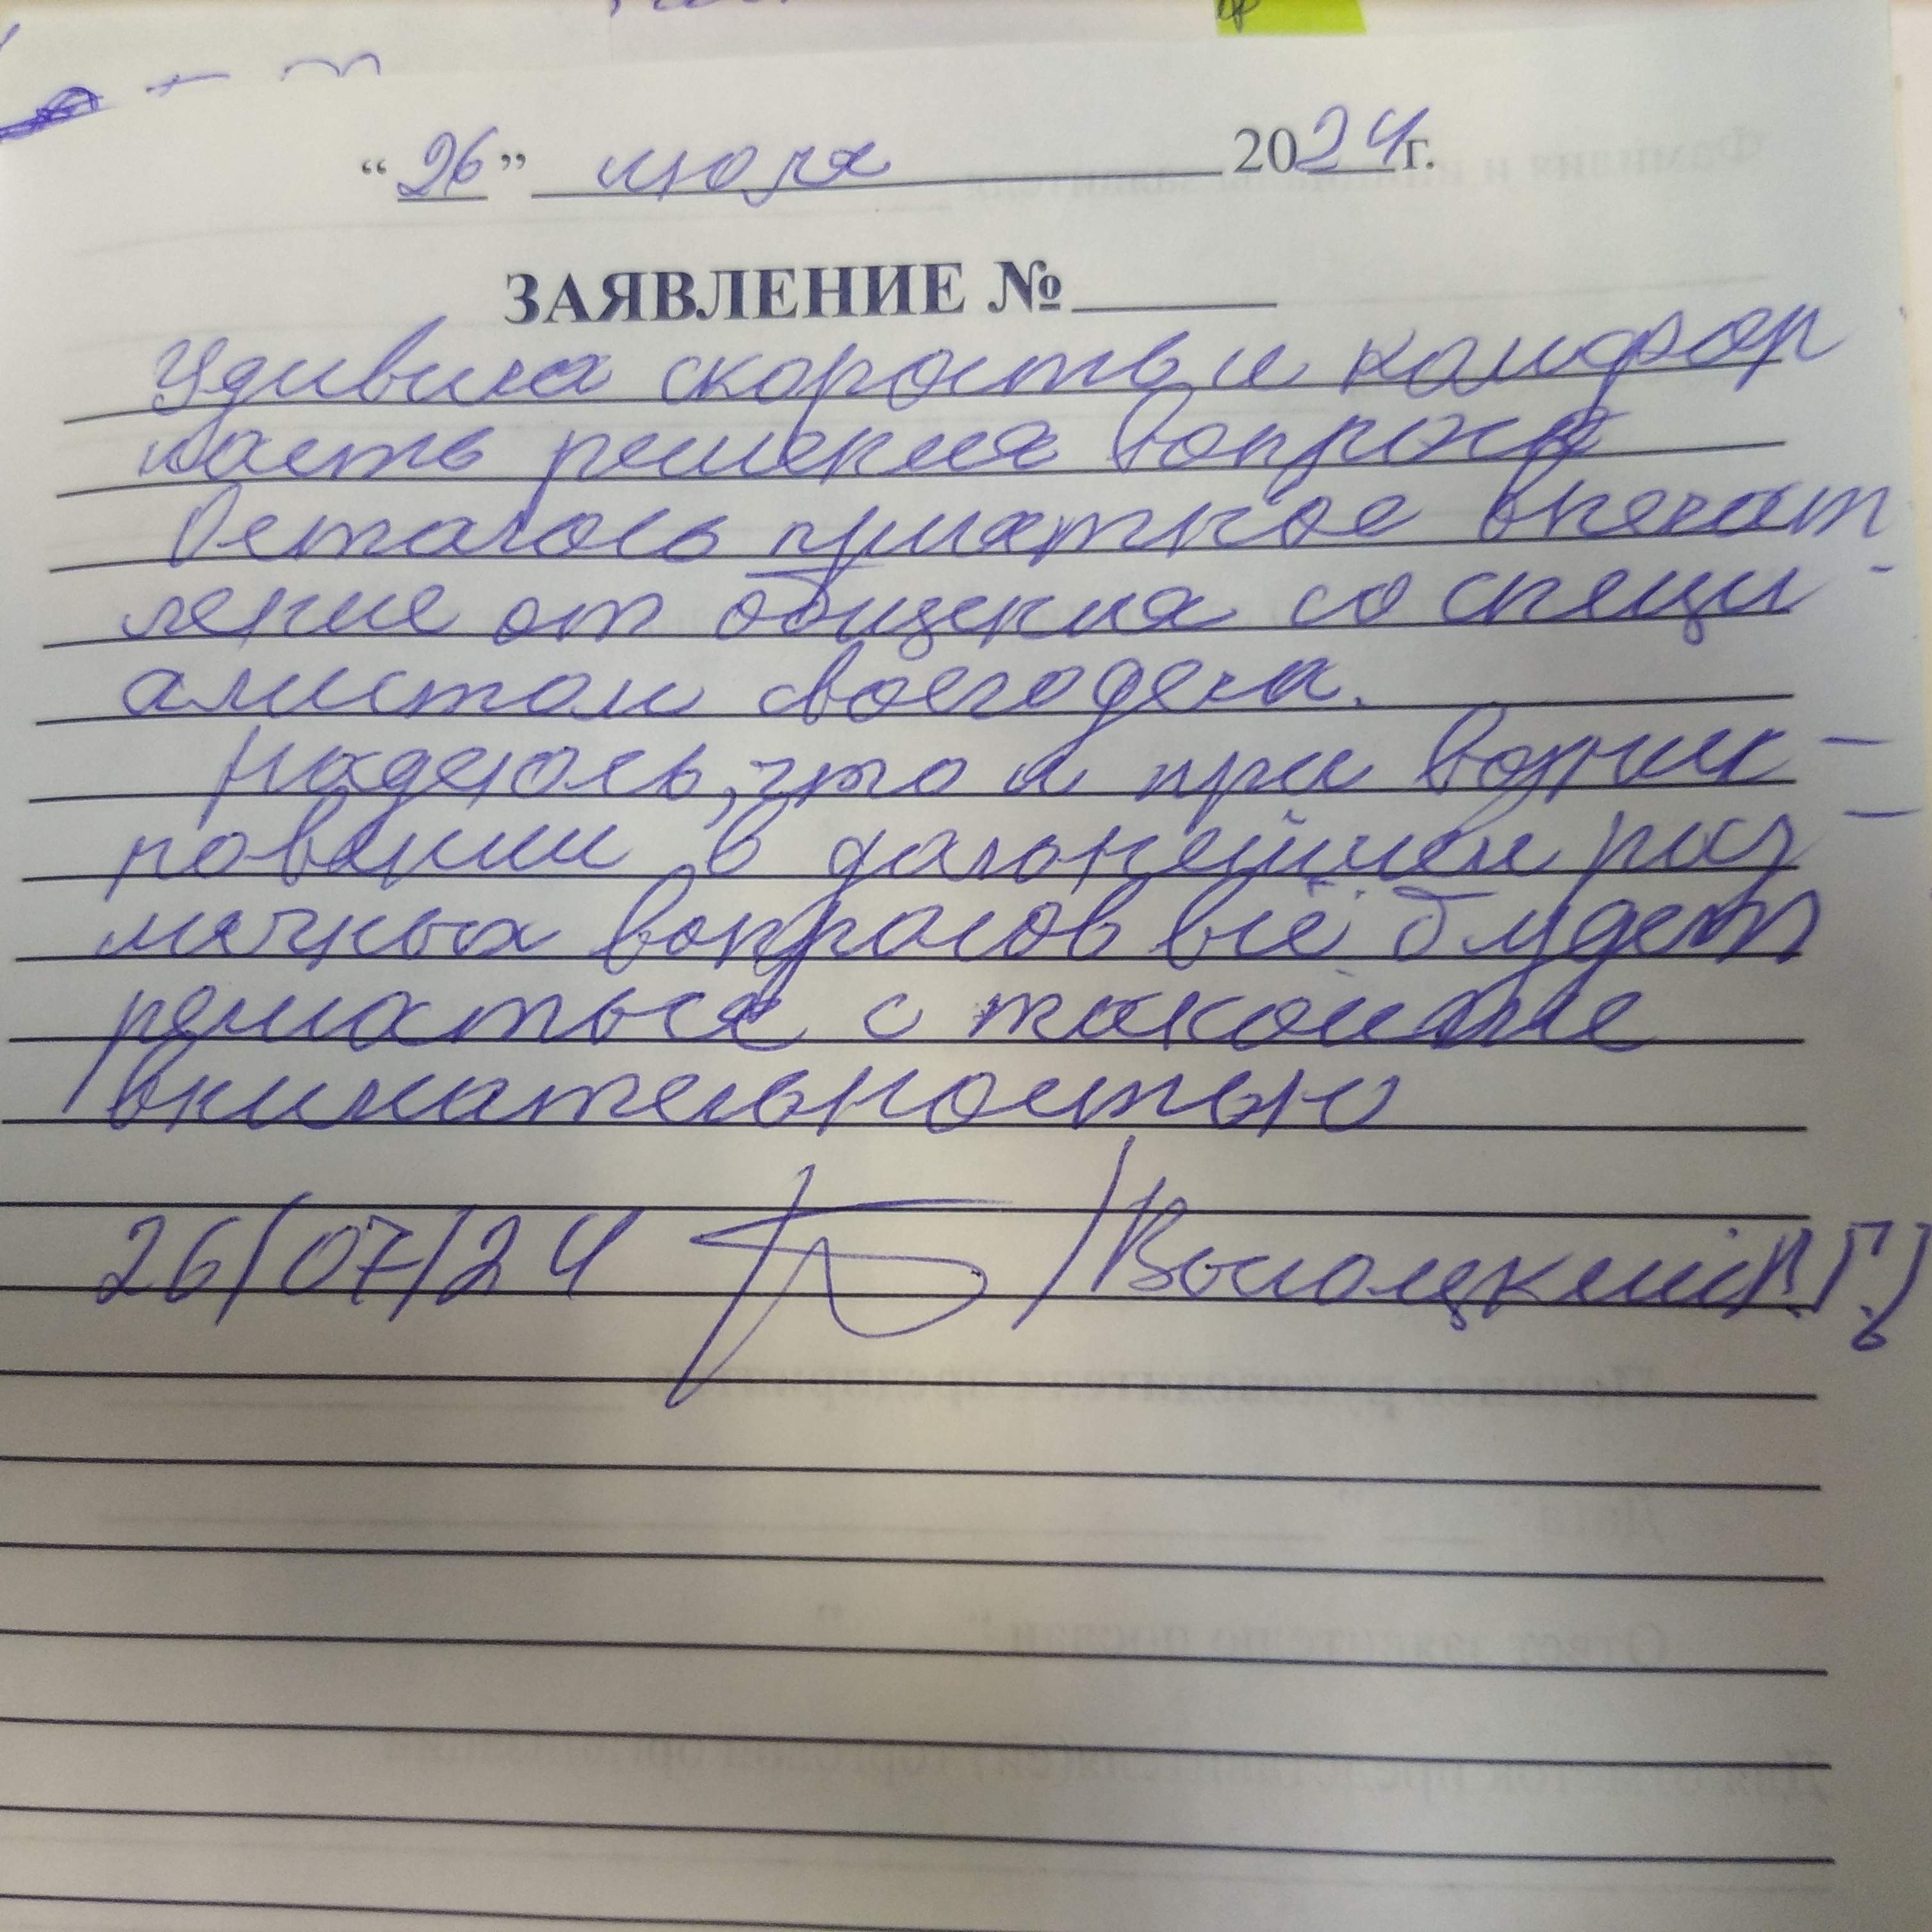 “26” июля 2024г.
ЗАЯВЛЕНИЕ №
Удивила скорость и комфор
ность решения вопроса
Осталось приятное впечат
ление от общения со специ-
алистом своего дела.
Надеюсь, что и при возник-
новении в дальнейшем раз-
личных вопросов всё будет
решаться с такой же
внимательностью
26/07/24